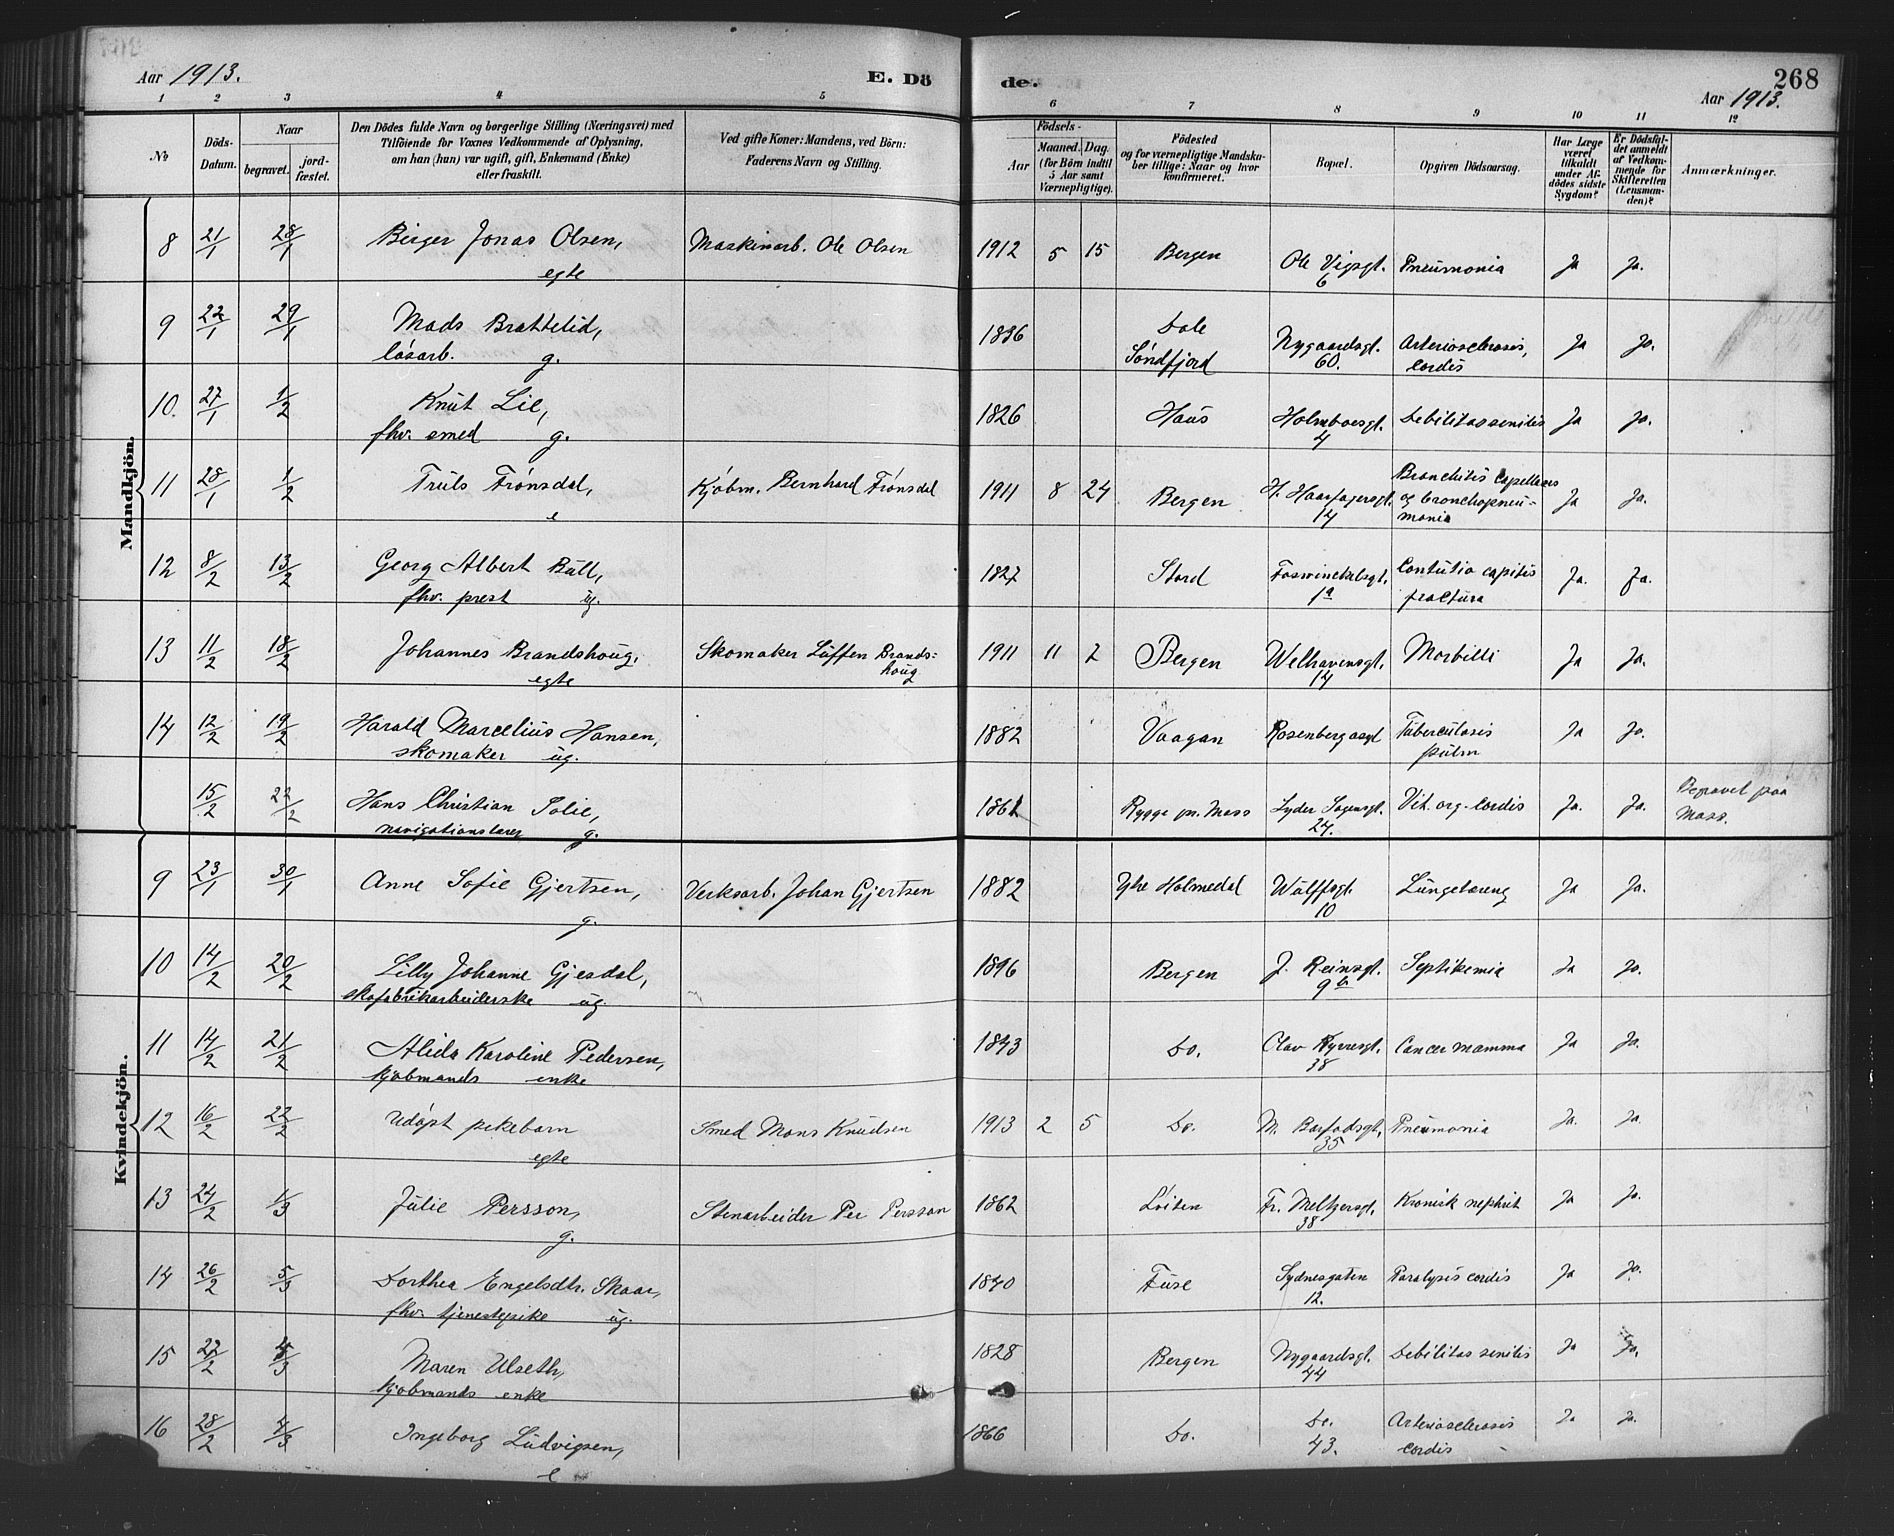 Aar 1913.
E. Dö
de.
268
Aar 1913.
1 2 3 4 5 6 7 8 9 10 11 12
No
Döds-
Datum.
Naar
begravet.
jord-
fæstet.
Den Dödes fulde Navn og borgerlige Stilling (Næringsvei) med
Tilföiende for Voxnes Vedkommende af Oplysning,
om han (hun) var ugift, gift, Enkemand (Enke)
eller fraskilt.
Ved gifte Koner: Mandens, ved Börn:
Faderens Navn og Stilling.
Födsels-
Aar
Maaned. Dag.
(for Börn indtil
5 Aar samt
Værnepligtige).
Födested
og for værnepligtige Mandska-
ber tillige: Naar og hvor
konfirmeret.
Bopæl.
Opgiven Dödsaarsag.
Har Læge
været
tilkaldt
under Af-
dödes sidste
Sygdom?
Er Dödsfal-
det anmeldt
af Vedkom-
mende for
Skifteretten
(Lensman-
den)?
Anmærkninger.
Mandkjön.
8 21/1 28/1 Birger Jonas Olsen, Maskinarb. Ole Olsen 1912 5 15 Bergen Ole Vigsgt. Pneumonia Ja Ja.
egte 6
9 22/1 29/1 Mads Brattelid, 1836 Dale Nygaardsgt. Arteriosclerosis, Ja Ja.
løsarb. g. Søndfjord 60. cordis
10. 27/1 1/2 Knut Lie, 1826 Haus Holmboesgt. Debilitas senilis Ja Ja.
fhv. smed g. 4
11 28/1 1/2 Truls Frønsdal, Kjøbm. Bernhard Frønsdal 1911 8 24 Bergen H. Haarfagersgt. Bronchitis Capellaris Ja Ja.
e 14 og bronchopneu-
monia
12 8/2 13/2 Georg Albert Bull, 1827 Stord Foswinckelsgt. Contutio capitis Ja. Ja.
fhv. prest ug. 1a fractura
13 11/2 18/2 Johannes Brandshoug, Skomaker Luffen Brands- 1911 11 2 Bergen Welhavensgt. Morbilli Ja Ja.
egte houg 14
14 12/2 19/2 Harald Marcelius Hansen, 1882 Vaagan Rosenbergasgt Tuberculosis Ja Ja.
skomaker ug. pulm
15/2 22/2 Hans Christian Solie, 1861 Rygge pr. Moss Lyder Sagensgt. Vit. org. Cordis Ja. Ja. Begravet paa
navigationslærer g. 24. Moss.
Kvindekjön.
9 23/1 30/1 Anne Sofie Gjertsen, Verksarb. Johan Gjertsen 1882 Ytre Holmedal Wulffsgt. Lungetæring Ja Ja.
g. 10
10 14/2 20/2 Lilly Johanne Gjesdal, 1896 Bergen J. Reinsgt. Septikemia Ja Ja.
skofabrikarbeiderske ug. 9b
11 14/2 21/2 Alida Karoline Pedersen, 1843 Do. Olav Kyrresgt. Cancer mamma Ja Ja.
kjøbmands enke 38
12 16/2 22/2 Udøpt pikebarn Smed Mons Knudsen 1913 2 5 Do. M. Barfodsgt. Pneumonia Ja. Ja.
egte 35
13 24/2 1/3 Julie Persson, Stenarbeider Per Persson 1862 Løiten Fr. Meltzersgt. Kronisk nephrit Ja Ja.
g. 38
14 26/2 5/3 Dorthea Engelsdtr. Skaar, 1840 Fuse Sydnesgaten Paralysis cordis Ja Ja.
fhv. tjenestepike ug. 12.
15 27/2 /3 Maren Ulseth, 1828 Bergen Nygaardsgt. Debilitas senilis Ja Ja.
kjøbmands enke 44
16 28/2 4/3 Ingeborg Ludvigsen, 1866 Do. Do. Arteriosclerosis Ja Ja.
e 43. cordis